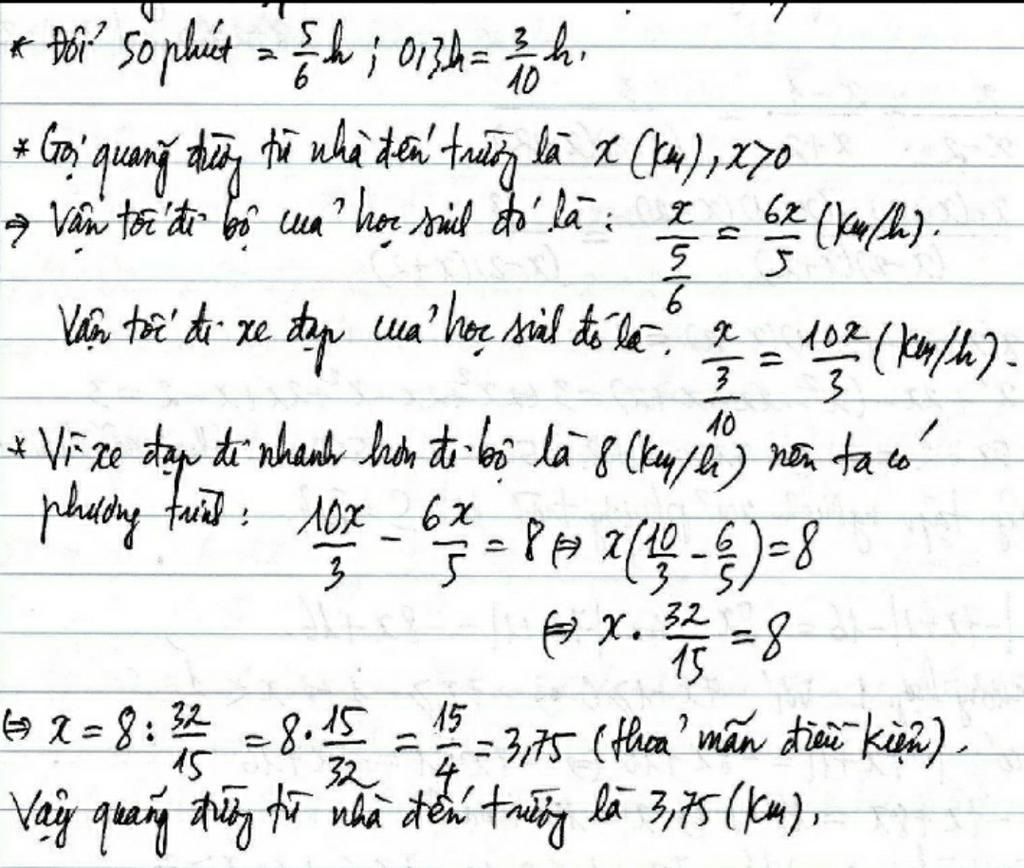 * Đổi 50 phút = 5/6 h ; 0,3h = 3/10 h.
* Gọi quãng đường từ nhà đến trường là x (km), x>0
⇒ Vận tốc đi bộ của học sinh đó là: x/(5/6) = 6x/5 (km/h).
Vận tốc đi xe đạp của học sinh đó là: x/(3/10) = 10x/3 (km/h).
* Vì xe đạp đi nhanh hơn đi bộ là 8 (km/h) nên ta có
phương trình: 10x/3 - 6x/5 = 8 ⇔ x(10/3 - 6/5) = 8
⇔ x . 32/15 = 8
⇔ x = 8 : 32/15 = 8 . 15/32 = 15/4 = 3,75 (thoả mãn điều kiện).
Vậy quãng đường từ nhà đến trường là 3,75 (km).